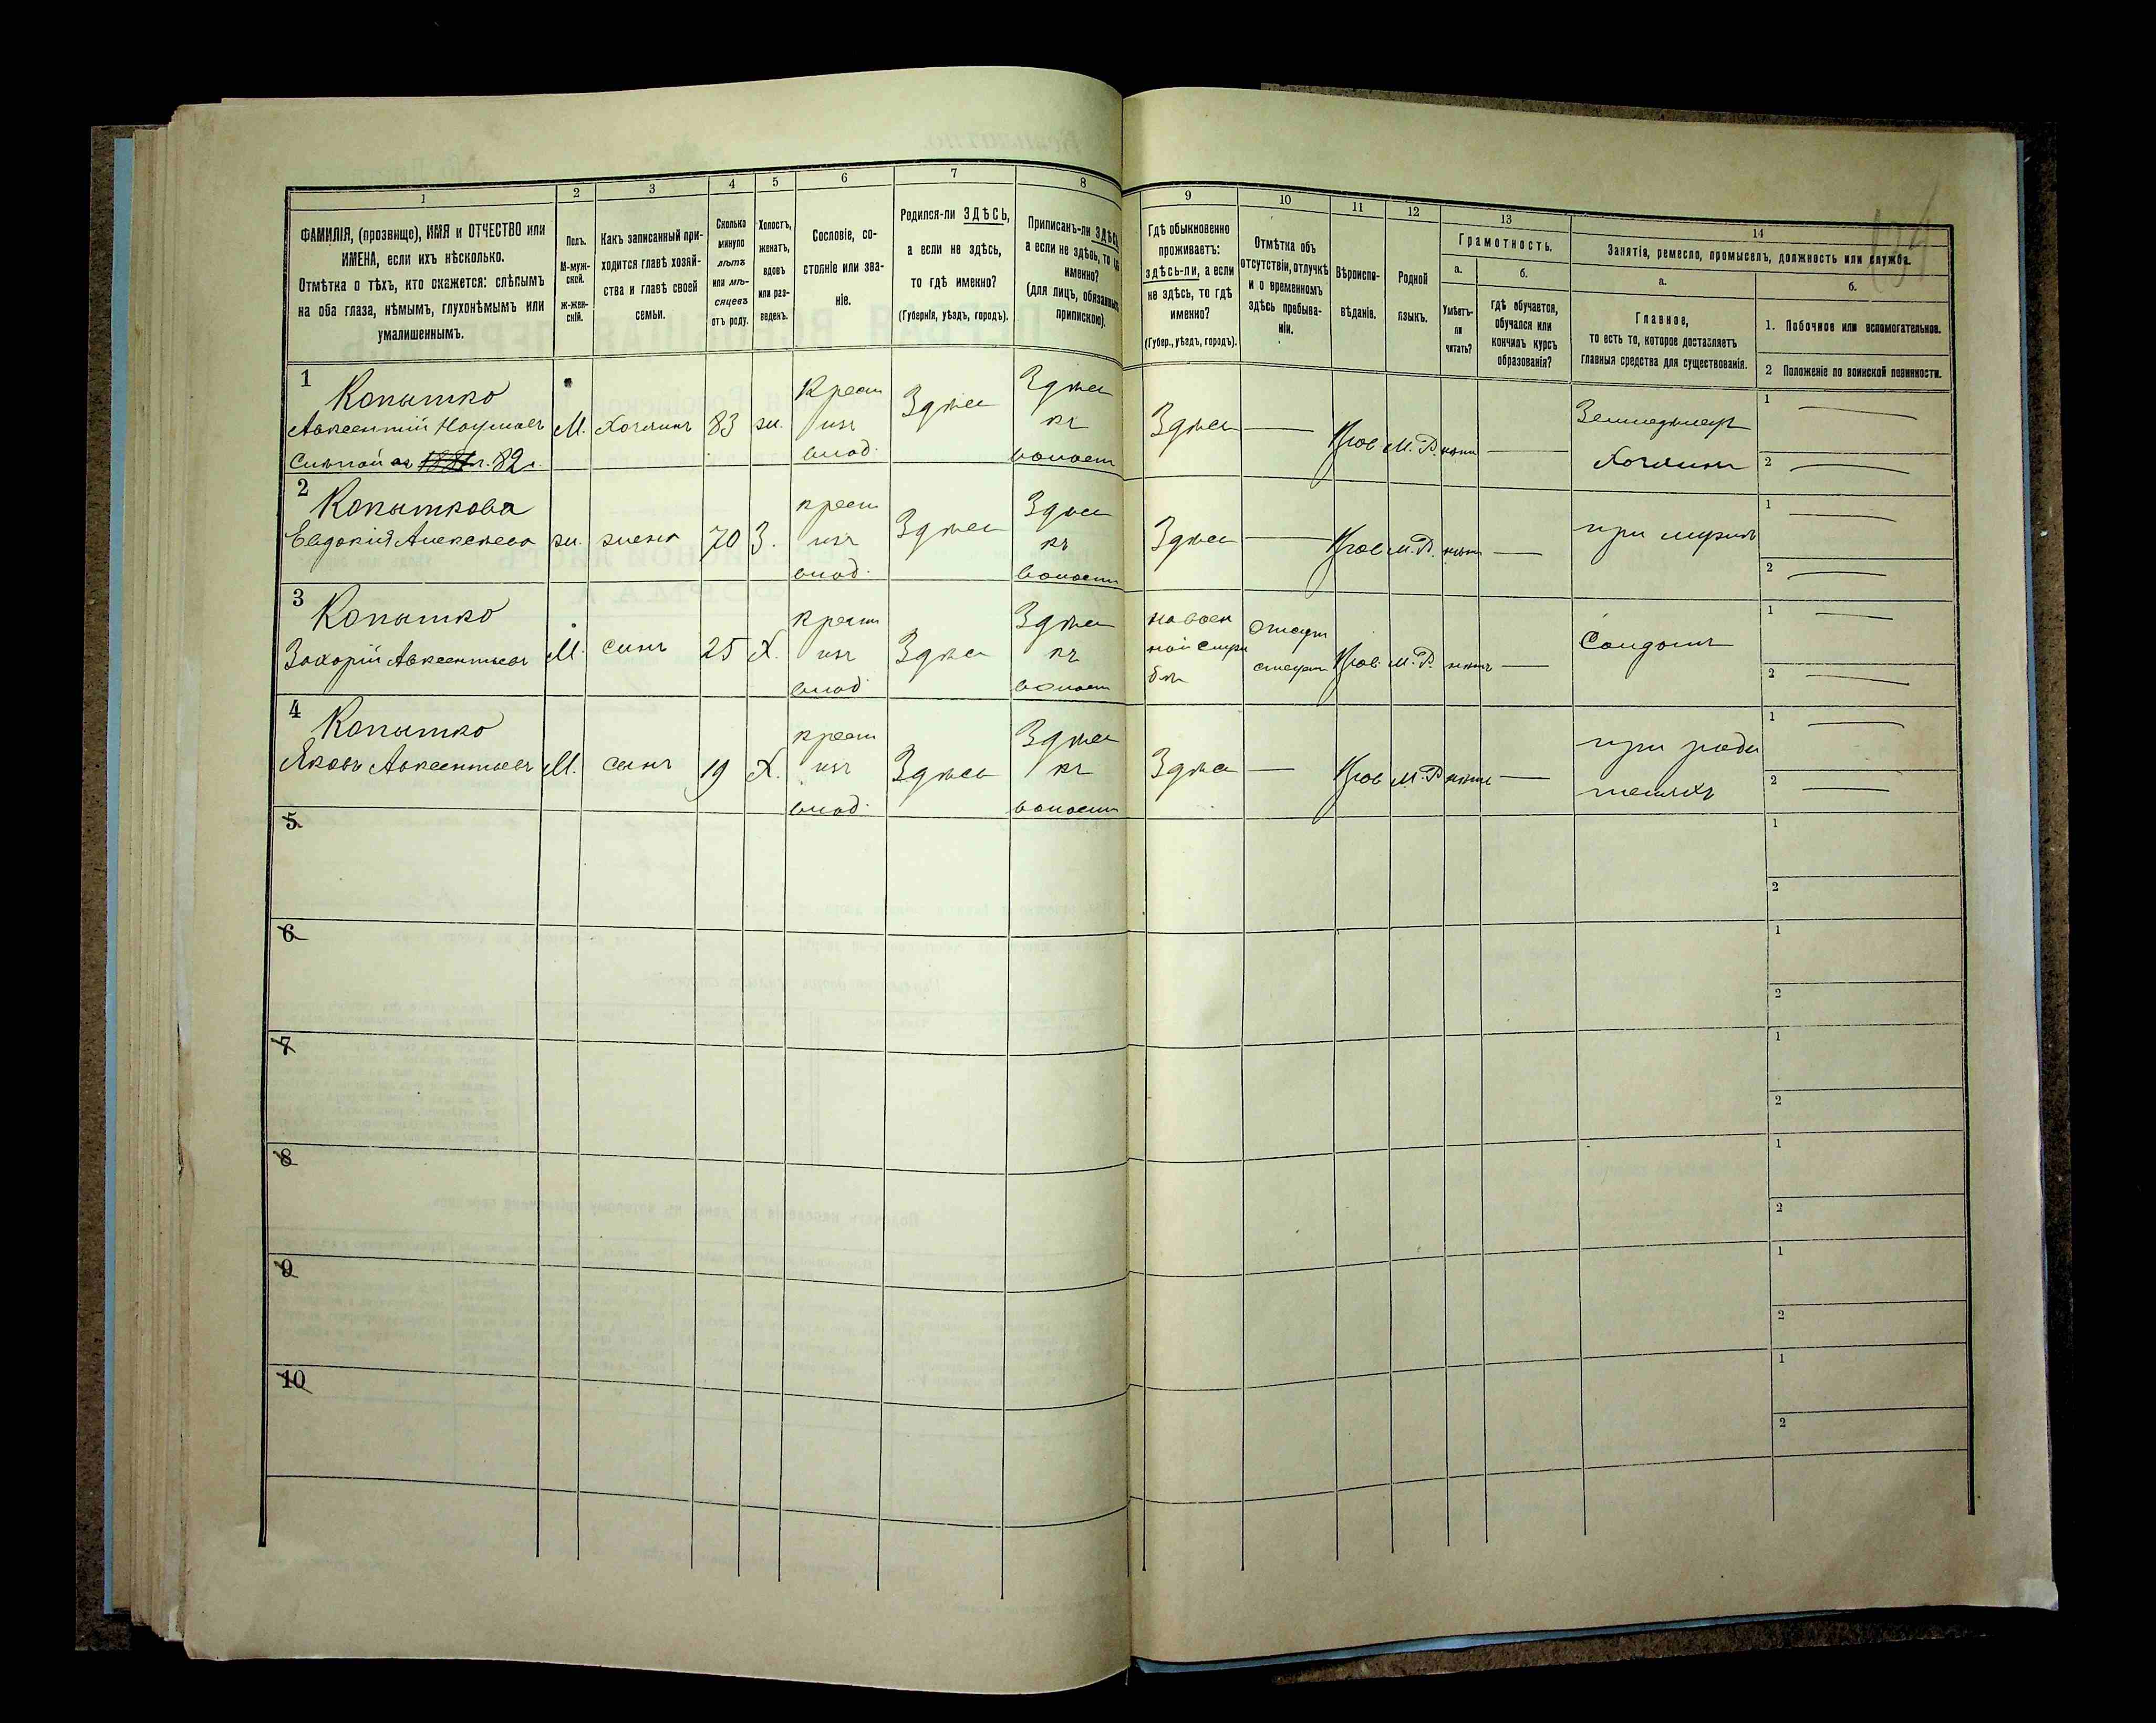 1
2
3
4
5
6
7
8
ФАМИЛІЯ, (прозвище), ИМЯ и ОТЧЕСТВО или
ИМЕНА, если ихъ нѣсколько.
Отмѣтка о тѣхъ, кто окажется: слѣпымъ
на оба глаза, нѣмымъ, глухонѣмымъ или
умалишеннымъ.
Полъ.
М-муж-
ской.
Ж-жен-
скій.
Какъ записанный при-
ходится главѣ хозяй-
ства и главѣ своей
семьи.
Сколько
минуло
лѣтъ
или мѣ-
сяцевъ
отъ роду.
Холостъ,
женатъ,
вдовъ
или раз-
веденъ.
Сословіе, со-
стояніе или зва-
ніе.
Родился-ли ЗДѢСЬ,
а если не здѣсь,
то гдѣ именно?
(Губернія, уѣздъ, городъ).
Приписанъ-ли ЗДѢСЬ
а если не здѣсь, то гдѣ
именно?
(для лицъ, обязанныхъ
припискою).
9
10
11
12
13
14
Гдѣ обыкновенно
проживаетъ:
здѣсь-ли, а если
не здѣсь, то гдѣ
именно?
(Губер., уѣздъ, городъ).
Отмѣтка объ
отсутствіи, отлучкѣ
и о временномъ
здѣсь пребыва-
ніи.
Вѣроиспо-
вѣданіе.
Родной
языкъ.
Грамотность.
а.
Умѣетъ-
ли
читать?
б.
гдѣ обучается,
обучался или
кончилъ курсъ
образованія?
Занятіе, ремесло, промыселъ, должность или служба.
а.
Главное,
то есть то, которое доставляетъ
главныя средства для существованія.
б.
1. Побочное или вспомогательное.
2 Положеніе по воинской повинности.
134
1
Копытко
Авксентій Наумовъ М. Хозяинъ 83 ж. Крест изъ влад. Здѣсь Здѣсь къ волост
Слѣпой 82
Здѣсь — Прав М.Р. нѣтъ — Земледѣлецъ
Хозяинъ
1 —
2 —
2
Копыткова
Евдокія Алексѣева ж. жена 70 З. крест изъ влад. Здѣсь Здѣсь къ волости
Здѣсь — Прав М.Р. нѣтъ — при мужѣ
1 —
2 —
3
Копытко
Захарій Авксентіевъ М. сынъ 25 Х. крест изъ влад Здѣсь Здѣсь къ волост
на воен
ной служ
бѣ
Отсут
ствует
Прав. М.Р. нѣтъ — Солдатъ
1 —
2 —
4
Копытко
Яковъ Авксентіевъ М. сынъ 19 Х. крест изъ влад. Здѣсь Здѣсь къ волости
Здѣсь — Прав М.Р нѣтъ — при роди
теляхъ
1 —
2 —
5
1
2
6
1
2
7
1
2
8
1
2
9
1
2
10
1
2